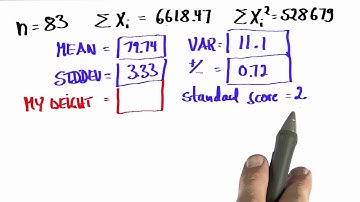 n = 83 Σxᵢ = 6618.47 Σxᵢ² = 528679
MEAN = 79.74 VAR: 11.1
STDDEV = 3.33 +/- 0.72
MY HEIGHT = standard score = 2